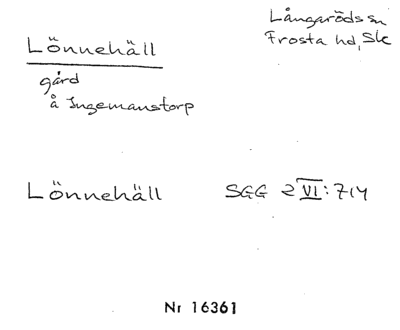 Långaröds sn
Frosta hd, Sk
Lönnehäll
gård
å Ingemanstorp
Lönnehäll SGG 2 VI: 714
Nr 16361